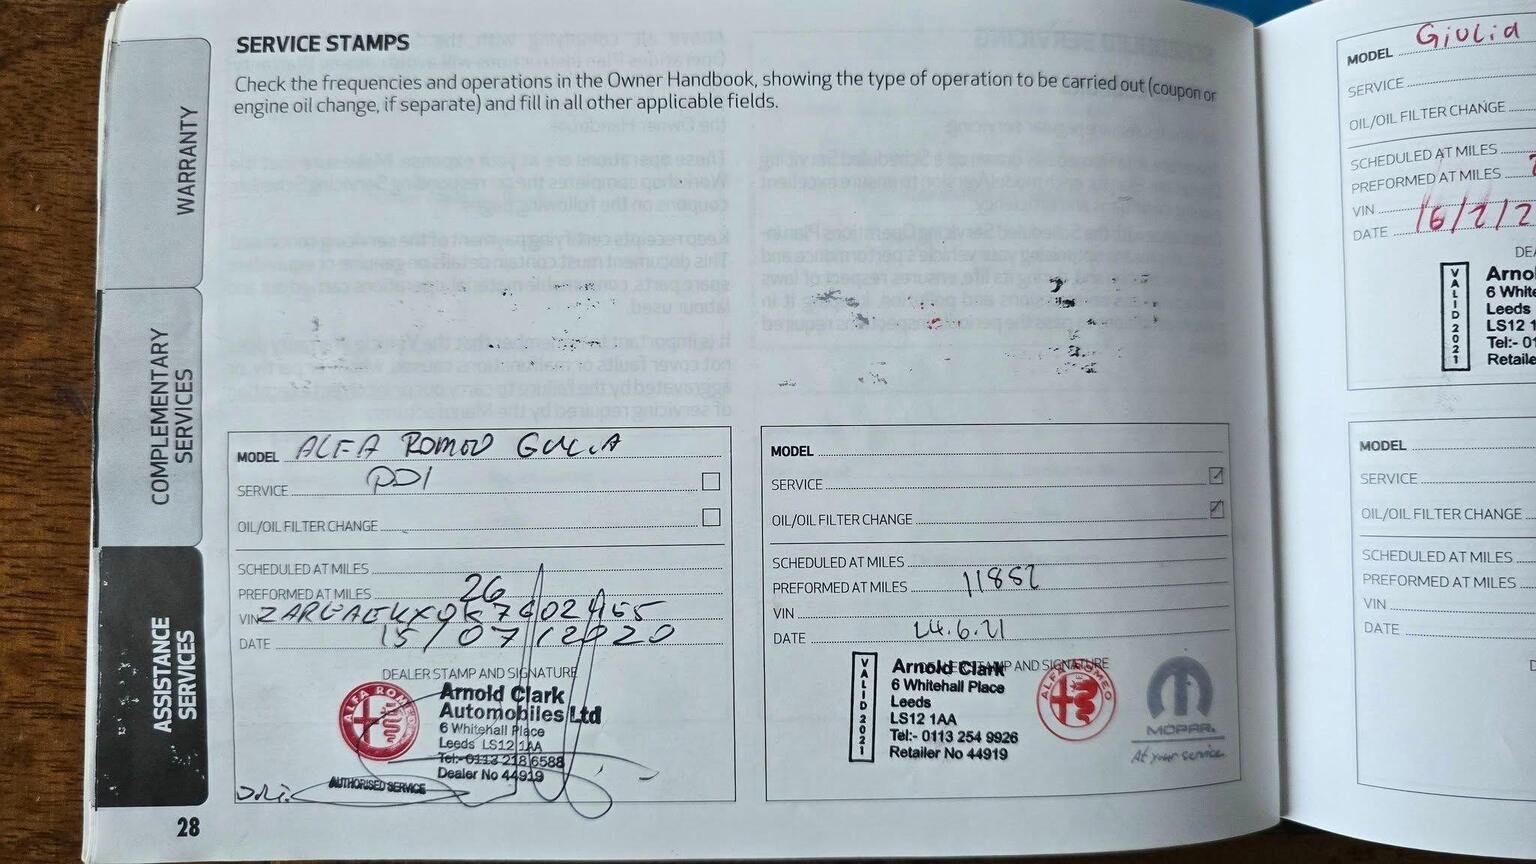 SERVICE STAMPS
Check the frequencies and operations in the Owner Handbook, showing the type of operation to be carried out (coupon or
engine oil change, if separate) and fill in all other applicable fields.
WARRANTY
COMPLEMENTARY
SERVICES
ASSISTANCE
SERVICES
MODEL ALFA ROMEO GIULIA
SERVICE PDI
OIL/OIL FILTER CHANGE
SCHEDULED AT MILES
PREFORMED AT MILES 26
VIN
DATE 15/07/2020
DEALER STAMP AND SIGNATURE
ALFA ROMEO
Arnold Clark
Automobiles Ltd
6 Whitehall Place
Leeds LS12 1AA
Tel:- 0113 218 6588
Dealer No 44919
AUTHORISED SERVICE
28
MODEL
SERVICE
OIL/OIL FILTER CHANGE
SCHEDULED AT MILES
PREFORMED AT MILES 11852
VIN
DATE 24.6.21
DEALER STAMP AND SIGNATURE
VALID 2021
Arnold Clark
6 Whitehall Place
Leeds
LS12 1AA
Tel:- 0113 254 9926
Retailer No 44919
ALFA ROMEO
MOPAR
At your service
MODEL Giulia
SERVICE
OIL/OIL FILTER CHANGE
SCHEDULED AT MILES
PREFORMED AT MILES
VIN
DATE 16/2/2
DEA
VALID 2021
Arnol
6 White
Leeds
LS12 1
Tel:- 01
Retaile
MODEL
SERVICE
OIL/OIL FILTER CHANGE
SCHEDULED AT MILES
PREFORMED AT MILES
VIN
DATE
D